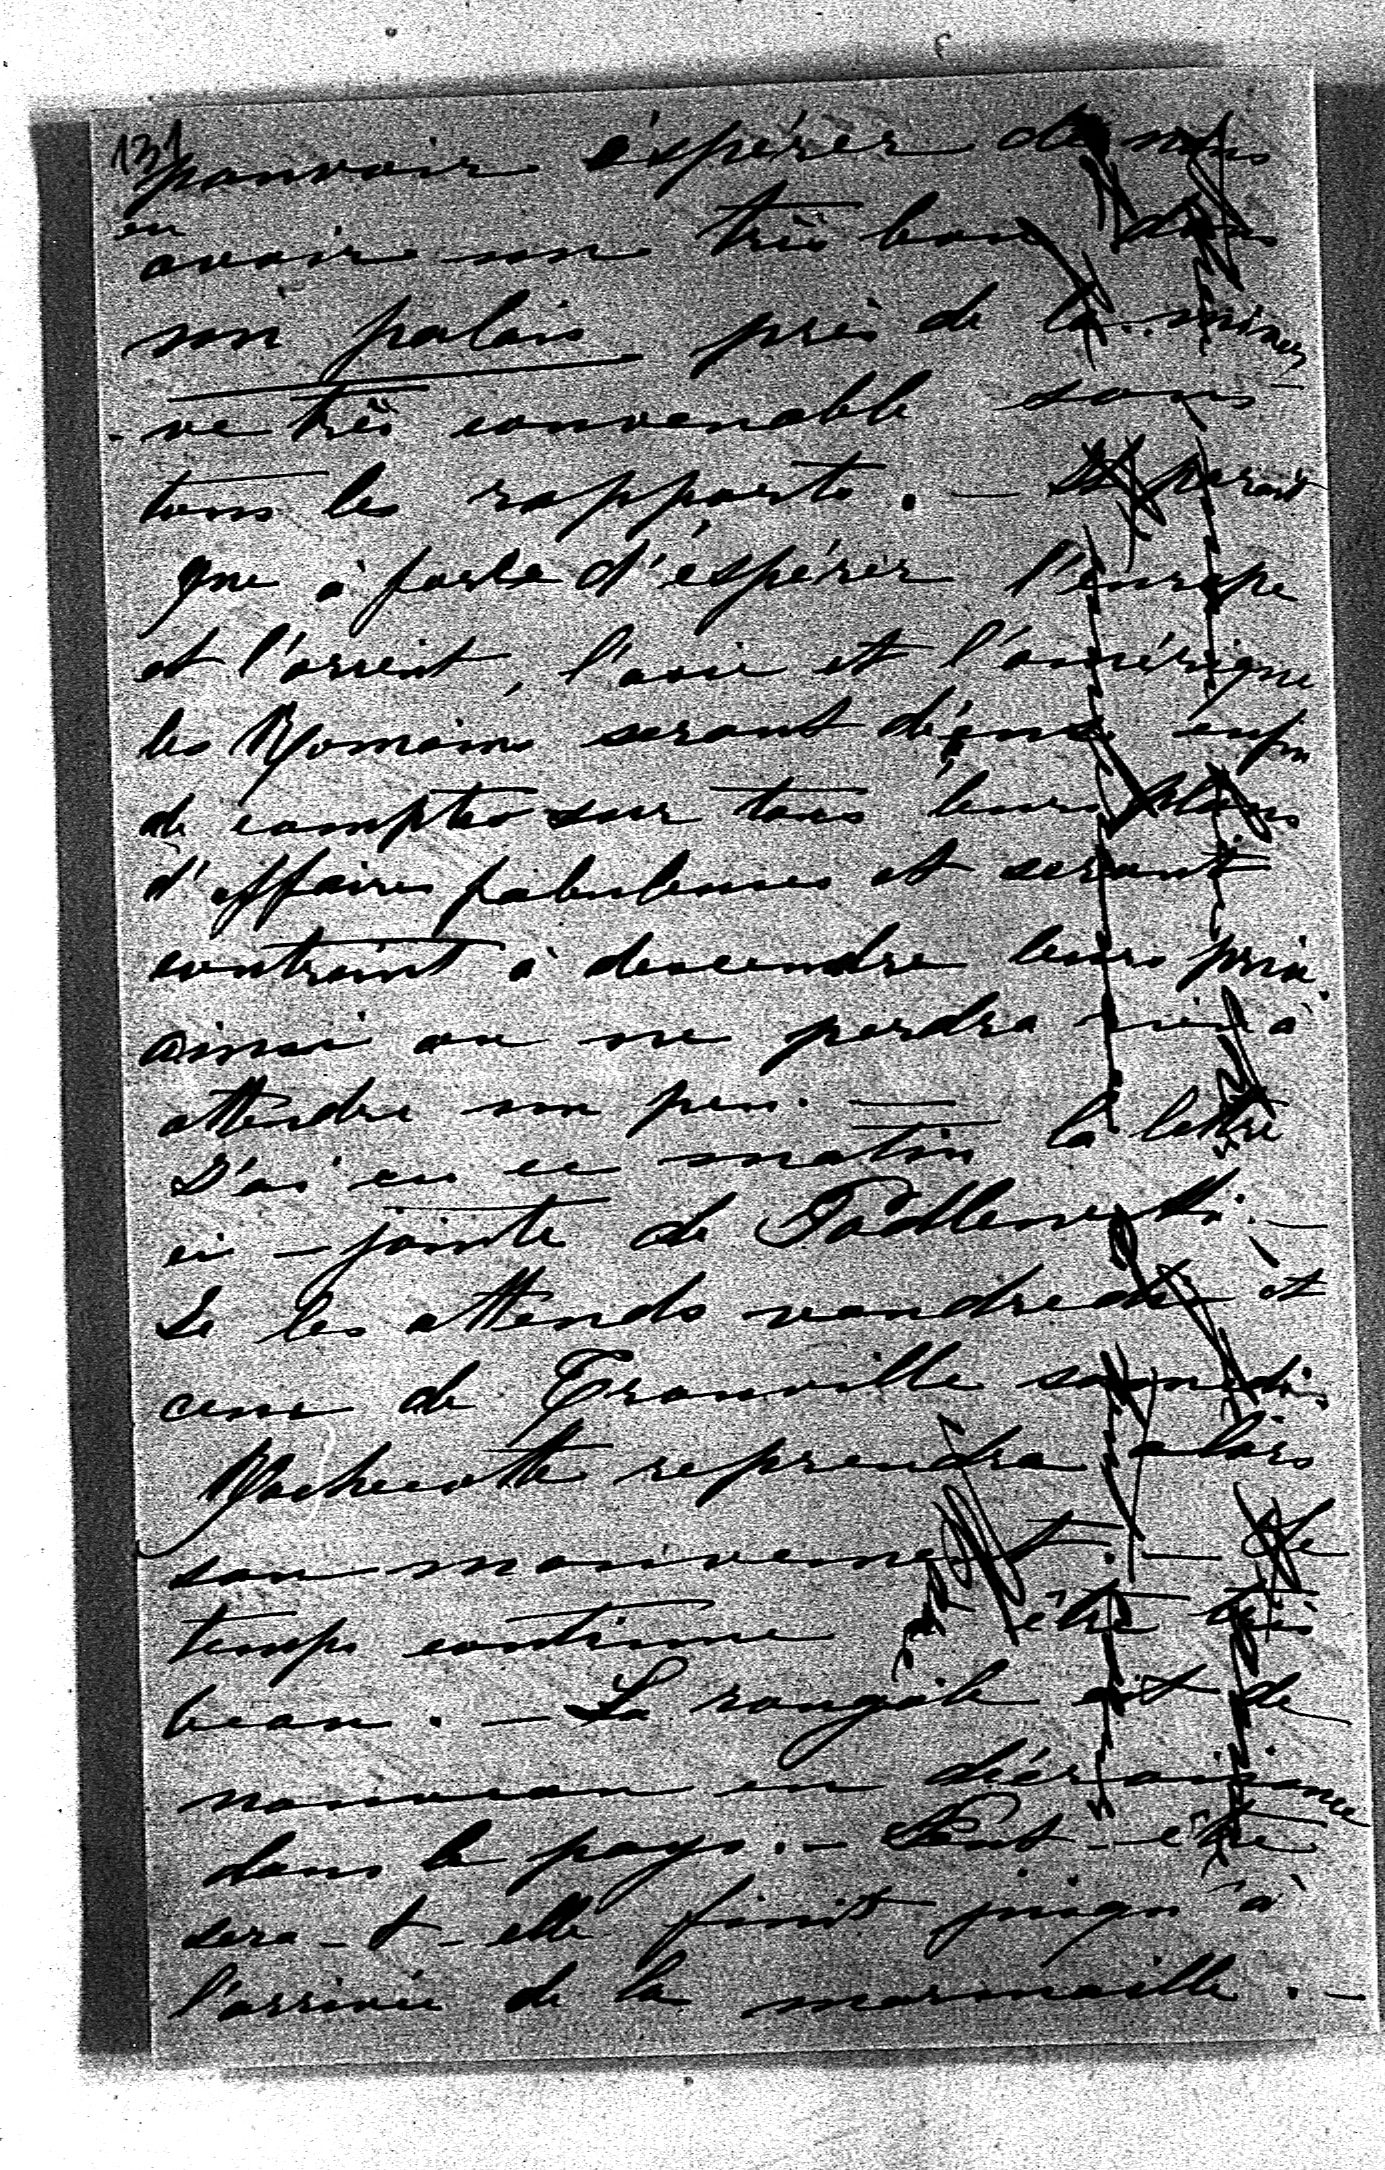 131
pouvoir éspérer de nous
en
avoir un très bon dans
son palais près de la miner
-ve très convenable sous
tous les rapports. — Il parait
que à force d'éspérer l'europe
et l'orient, l'asie et l'amérique
les Romains seront déçus enfin
de compte sur tous leurs plans
d'affaires fabuleuses et seront
contraint à descendre leurs prix.
ainsi on ne perdra rien à
attendre un peu. —
J'ai eu ce matin la lettre
ci-jointe de Padlewski. —
Je les attends vendredi et
ceux de Trouville samedi.
Rochecotte reprendra alors
son mouvement. — Le
temps continue être très
beau. — La rougeole est de
nouveau en décroissance
dans le pays. — Peut-être
sera-t-elle finit jusqu'à
l'arrivée de la marmaille. —